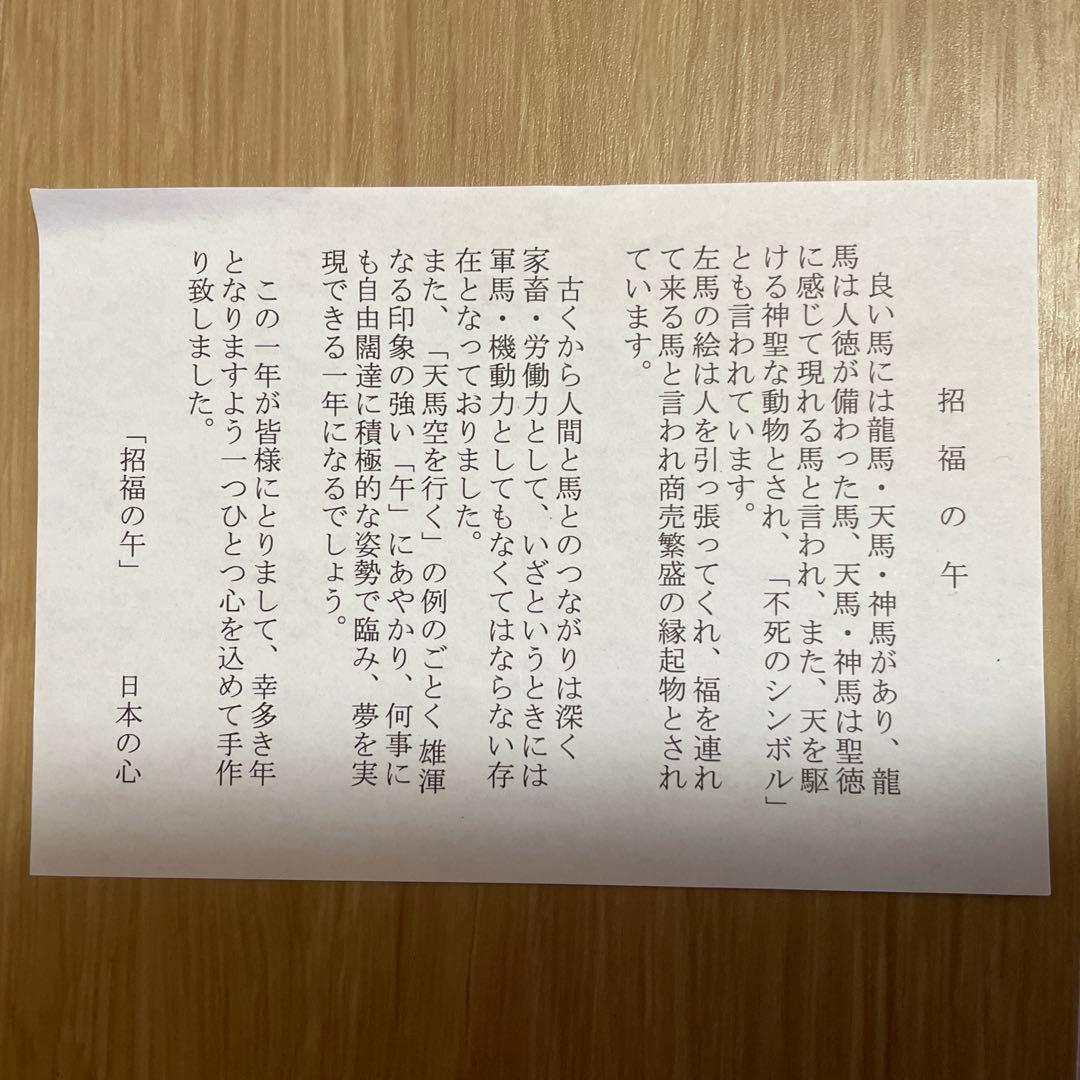 招福の午
良い馬には龍馬・天馬・神馬があり、龍
馬は人徳が備わった馬、天馬・神馬は聖徳
に感じて現れる馬と言われ、また、天を駆
ける神聖な動物とされ、「不死のシンボル」
とも言われています。
左馬の絵は人を引っ張ってくれ、福を連れ
て来る馬と言われ商売繁盛の縁起物とされ
ています。
古くから人間と馬とのつながりは深く
家畜・労働力として、いざというときには
軍馬・機動力としてもなくてはならない存
在となっておりました。
また、「天馬空を行く」の例のごとく雄渾
なる印象の強い「午」にあやかり、何事に
も自由闊達に積極的な姿勢で臨み、夢を実
現できる一年になるでしょう。
この一年が皆様にとりまして、幸多き年
となりますよう一つひとつ心を込めて手作
り致しました。
「招福の午」 日本の心